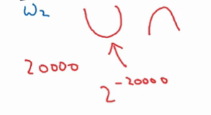 W₂
20000
2⁻²⁰⁰⁰⁰